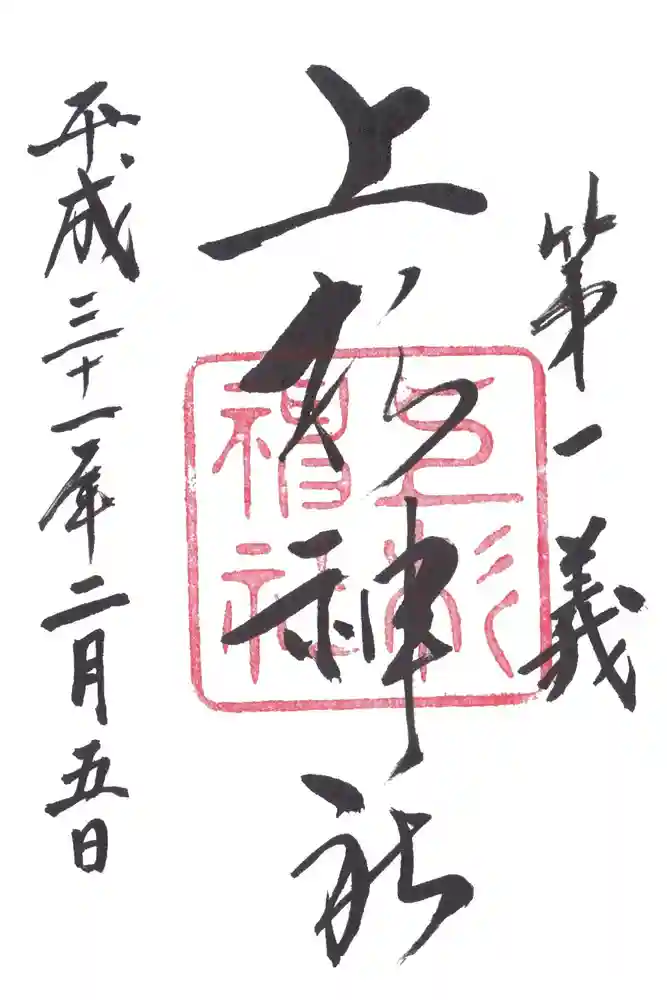 第一義
上杉神社
平成三十一年二月五日
上杉神社